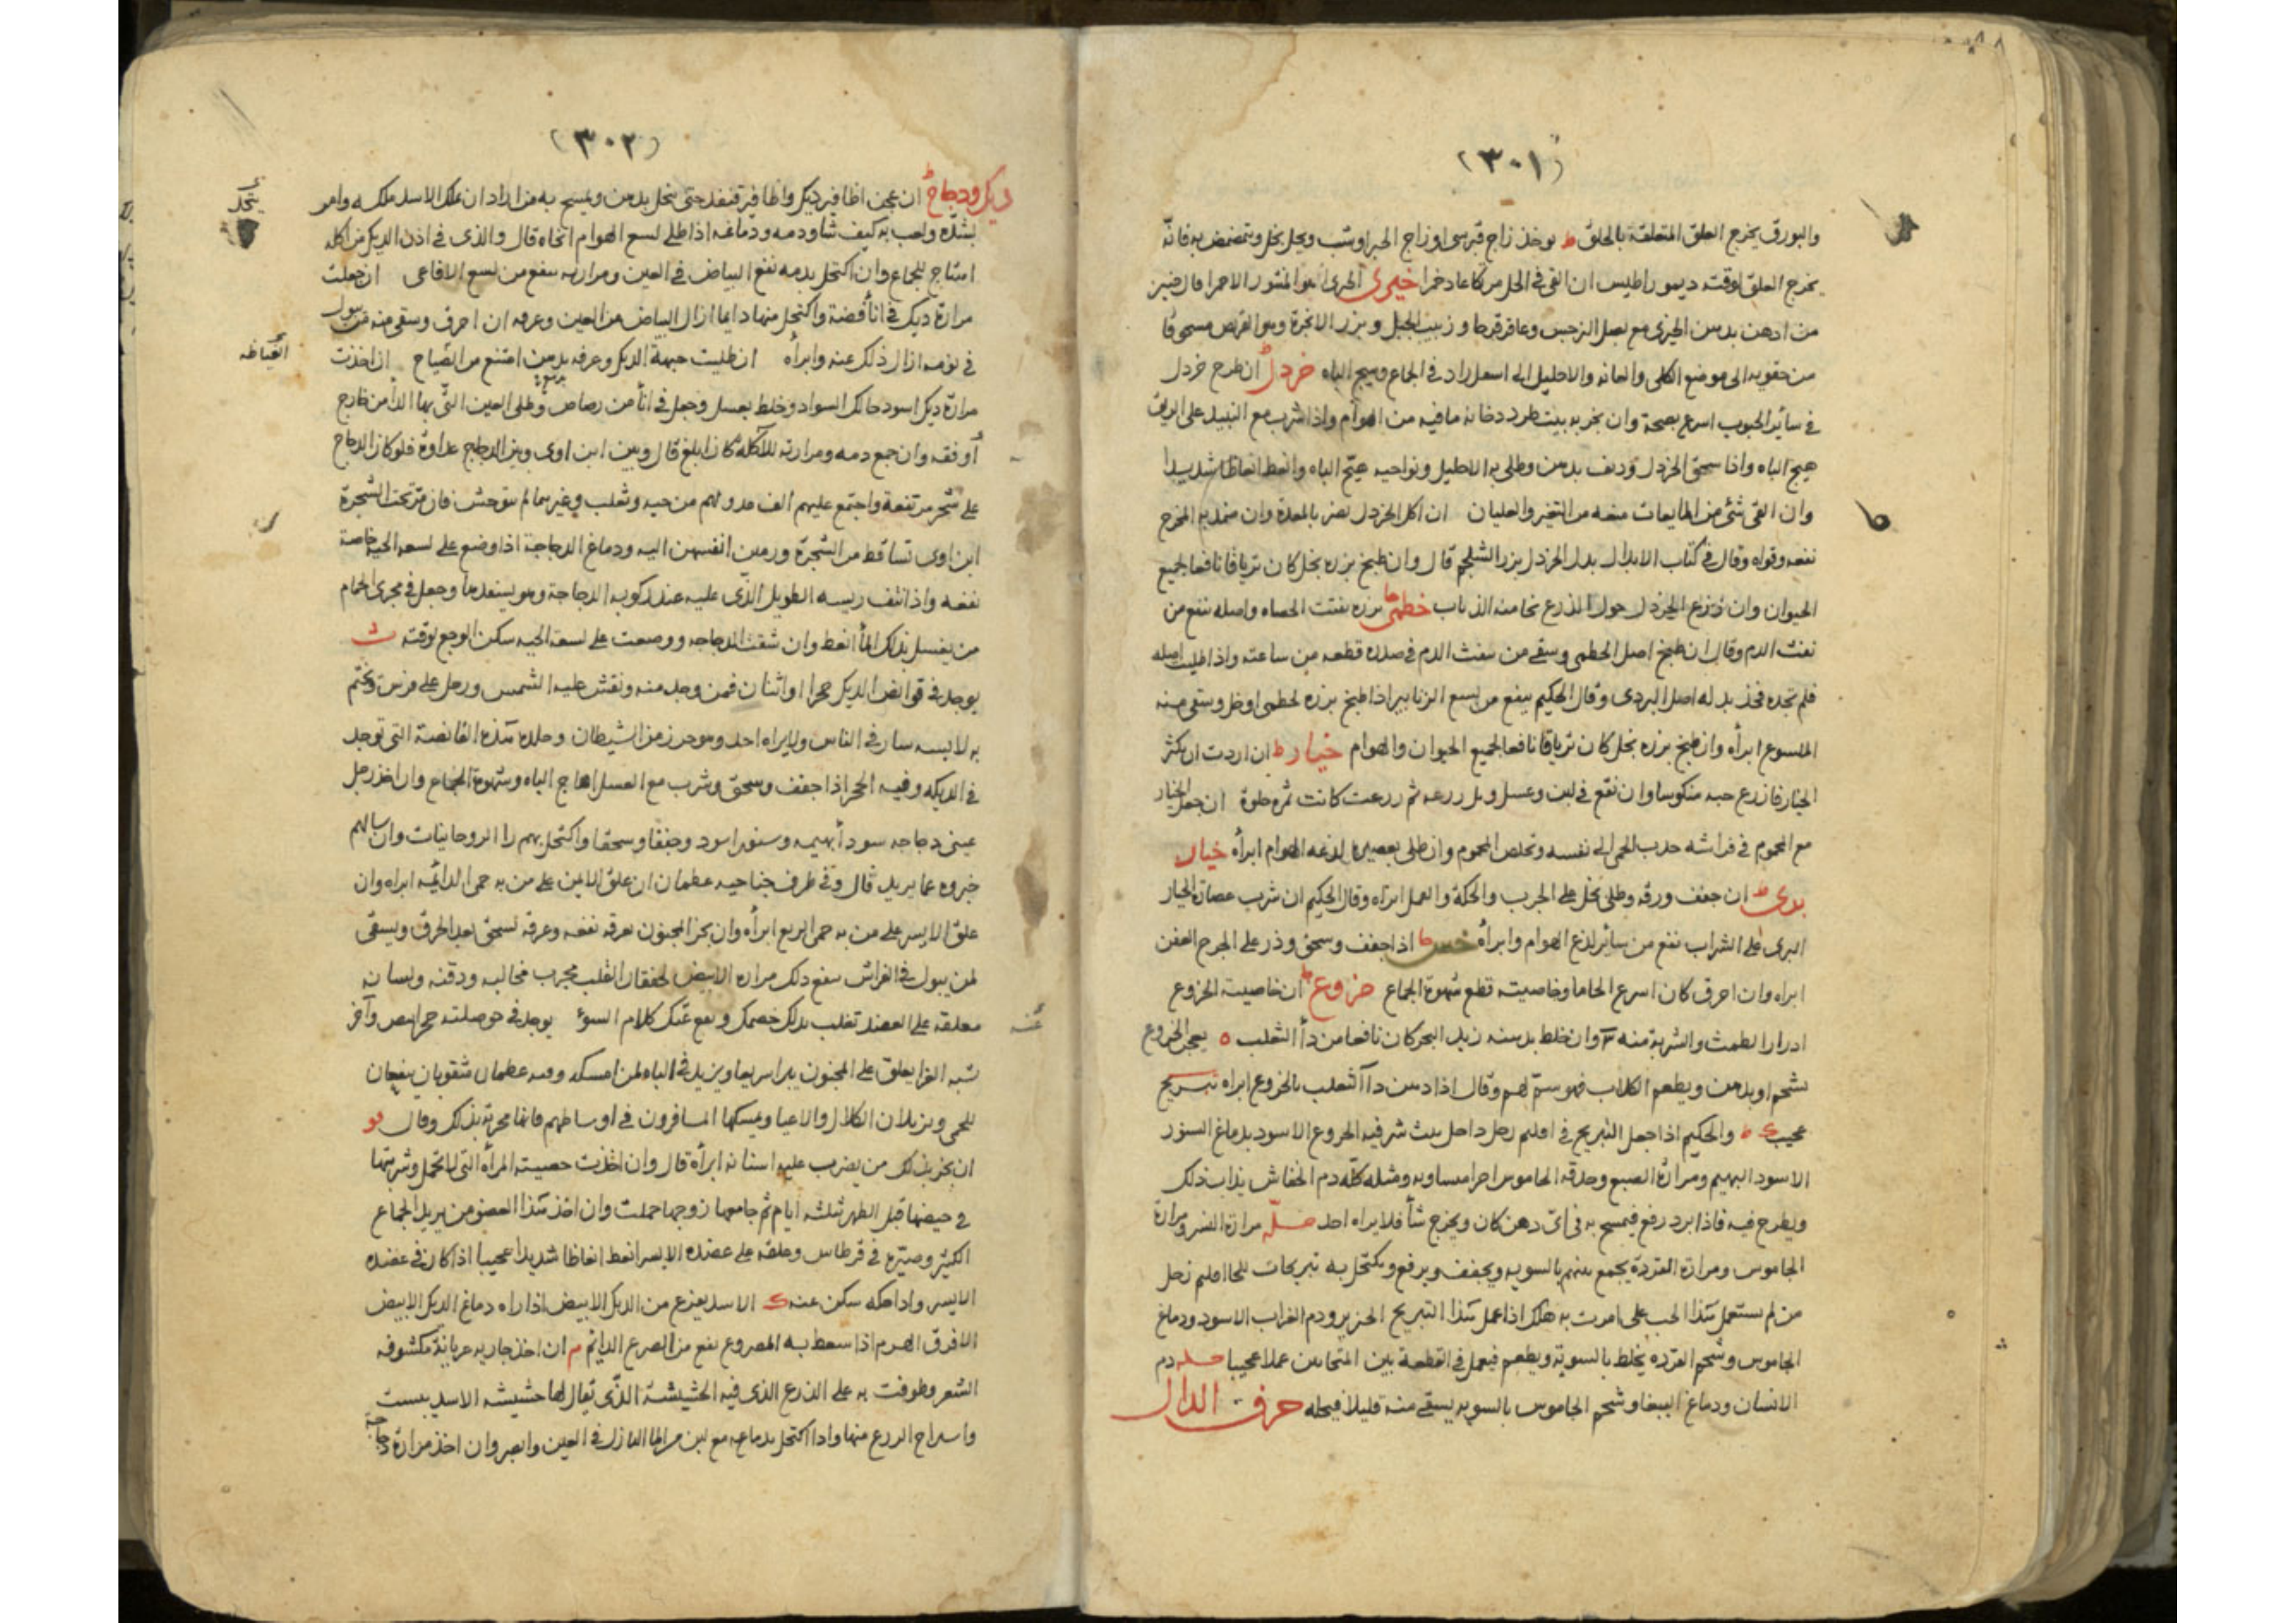 (٣٠١)
والبورق يخرج العلق المتعلقة بالحلق ط يوخذ زاج قبرسى او زاج الحبر او شب ويحل بخل ويتمضمض به فانه
يخرج العلق لوقته ديمو راطيس ان القى فى الخل مركا عاد خمرا خيرى الخيرى هو المنثور الاحمر قال
من ادهن بدهن الخيرى مع بصل النرجس وعاقرقرحا وزبيب الجبل وبزر الانجرة وهو القريص مسحوقا
من حقويه الى موضع الكلى والعانه والاحليل الى اسفل زاد فى الجماع وهيج الباه خردل ان طرح خردل
فى سائر الحبوب اسرع بصحة وان بخر به بيت طرد دخانه ما فيه من الهوام واذا شرب مع النبيذ على الريق
هيج الباه واذا سحق الخردل وديف بدهن وطلى به الاحليل ونواحيه هيج الباه وانعظ انعاظا شديدا
وان القى شئ من المايعات منعه من التغير والغليان ان اكل الخردل يضر بالمعدة وان
نفعه وقواه وقال فى كتاب الابدال بدل الخردل بزر الشلجم قال وان طبخ بزره بخل كان ترياقا نافعا لجميع
الحيوان وان زرع الخردل حول الزرع نجا منه الذباب خطمى بزره يفتت الحصاه واصله ينفع من
نفث الدم وقال ان طبخ اصل الخطمى وسقى من ينفث الدم فى صدره قطعه من ساعته واذا طلبت اصله
فلم تجده فخذ بدله اصل البردى وقال الحكيم ينفع من لسع الزنابير اذا طبخ بزره لخطمى او خل وسقى منه
الملسوع ابرأه وان طبخ بزره بخل كان ترياقا نافعا لجميع الحيوان والهوام خيار ط ان اردت ان يكثر
الخيار فازرع حبه منكوسا وان نقع فى لبن وعسل وبل زرعه ثم زرعت كانت ثمره حلوة ان جعل الخيار
مع المحموم فى فراشه جذب الحمى الى نفسه وتخلص المحموم وان طلى بعصيره لدغه الهوام ابرأه خيار
برى ط ان جفف ورقه وطلى بخل على الجرب والحكة والقمل ابراه وقال الحكيم ان شرب عصارة الخيار
البرى على الشراب نفع من سائر لذع الهوام وابرأه خس ط اذا جفف وسحق وذر على الجرح العفن
ابراه وان احرق كان اسرع الحاما وخاصيته قطع شهوة الجماع خروع ط ان خاصية الخروع
ادرار الطمث والشربة منه ٣ وان خلط بدهنه زبد البحر كان نافعا من دأ الثعلب ه يعجن الخروع
بشحم او بدهن ويطعم الكلاب فهو سم لهم وقال اذا دهن دآ الثعلب بالخروع ابراه تبريج
عجيب ط والحكيم اذا جعل التبريج فى اقليم زحل داخل بيت شرفيه الخروع الاسود بدماغ السنور
الاسود البهيم ومرارة الضبع وحدقه الجاموس اجزا متساويه ومثله كله دم الخفاش يذاب ذلك
ويطرح فيه فاذا برد رفع فيمسح به فى اى دهن كان ويخرج شأ فلا يراه احد حله مرارة النسر ومرارة
الجاموس ومرارة القردة يجمع بينهم بالسويه ويجفف ويرفع ويكتحل به تبريجات للحا اقليم زحل
من لم يستعمل هذا الحب على امرت به هلك اذا عمل هذا التبريج الخنزير ودم الغراب الاسود ودماغ
الجاموس وشحم القرده يخلط بالسوية ويطعم فيعمل فى القطعة بين المتحابين عملا عجيبا حله دم
الانسان ودماغ الببغا وشحم الجاموس بالسويه يسقى منه قليلا فيحله حرف الدال
(٣٠٢)
ديك ودجاج ط ان عجن اظافير ديك واظافير قنفد حتى ينحل بدهن ويمسح به من اراد ان يملك الاسد ملكه وامر
بشده ولعب به كيف شا ودمه ودماغه اذا طلى لسع الهوام انجاه قال والذى فى اذن الديك من اكله
اهتاج للجماع وان اكتحل بدمه نفع البياض فى العين ومرارته ينفع من لسع الافاعى ان جعلت
مرارة ديك فى انأ فضة واكتحل منها دايما ازال البياض من العين وعرفه ان احرق وسقى منه من يبول
فى نومه ازال ذلك عنه وابرأه ان طليت جبهة الديك وعرفه بدهن امتنع من الصياح ان اخذت
مرارة ديك اسود حالك السواد وخلط بعسل وجعل فى انأ من رصاص وطلى العين التى بها الدأ من خارج
أوفقه وان جمع دمه ومرارته للآكله كان ابلغ قال وبين ابن اوى وبين الدجاج عداوة فلو كان الدجاج
على شجر مرتفعة واجتمع عليهم الف عدو لهم من حيه وثعلب وغيرهما لم يتوحش فان مر تحت الشجرة
ابن اوى تساقط من الشجرة ورمين انفسهن اليه ودماغ الدجاجة اذا وضع على لسعه الحية خاصة
نفعه واذا نتف ريسه الطويل الذى عليه عند ركوبه الدجاجة وهو يسفدها وجعل فى مجرى الحمام
من يغسل بذلك المأ انعظ وان شقت الدجاجه ووضعت على لسعة الحيه سكن الوجع لوقته
يوجد فى قوانص الديك حجرا او اثنان فمن وجد منه ونقش عليه الشمس ورجل على فرس وتختم
به لابسه سار فى الناس ولا يراه احد وهو حرز من الشيطان وجلده هذه القانصة التى توجد
فى الديكه وفيه الحجر اذا جفف وسحق وشرب مع العسل اهاج الباه وشهوة الجماع وان اخذ رجل
عينى دجاجه سودأ بهيمه وسنور اسود وجففا وسحقا واكتحل بهم را الروحانيات وان سالهم
خبروه عما يريد قال وفى طرف جناحيه عظمان ان علق الايمن على من به حمى الدائمه ابراه وان
علق الايسر على من به حمى الربع ابرأه وان بخر المجنون بعرفه نفعه وعرفه تسحق بعد الحرق ويسقى
لمن يبول فى الفراش ينفع ذلك مراره الابيض لخفقان القلب مجرب مخالبه ودقنه ولسانه
معلقه على العضد تغلب بذلك خصمك ويمنع عنك كلام السوء يوجد فى حوصلته حجر ابيض وآخر
شبه الفرا يعلق على المجنون يبرا سريعا ويزيد فى الباه لمن امسكه وفيه عظمان مثقوبان ينفعان
للحمى ويزيلان الكلال والاعيا ويمسكها المسافرون فى اوساطهم فانها مجربة بذلك وقال
ان بخر بذلك من يضرب عليه اسنانه ابرأه قال وان اخذت خصيته المرأه التى لا تحمل وشربتها
فى حيضها قبل الطهر ثلثه ايام ثم جامعها زوجها حملت وان اخذ هذا العضو من يريد الجماع
الكثير وصيره فى قرطاس وعلقه على عضده الايسر انعظ انعاظا شديدا عجيبا اذا كان فى عضده
الايسر واذا حكه سكن عنه ى الاسد يفزع من الديك الابيض اذا راه دماغ الديك الابيض
الافرق الهرم اذا سعط به المصروع نفع من الصرع الدائم م ان اخذ جاريه عريانة مكشوفه
الشعر وطوفت به على الزرع الذى فيه الحشيشة الذى يقال لها حشيشه الاسد يبست
واستراح الزرع منها واذا اكتحل بدماغه مع لبن من الما النازل فى العين وابصر وان اخذ مرارة دجاجة